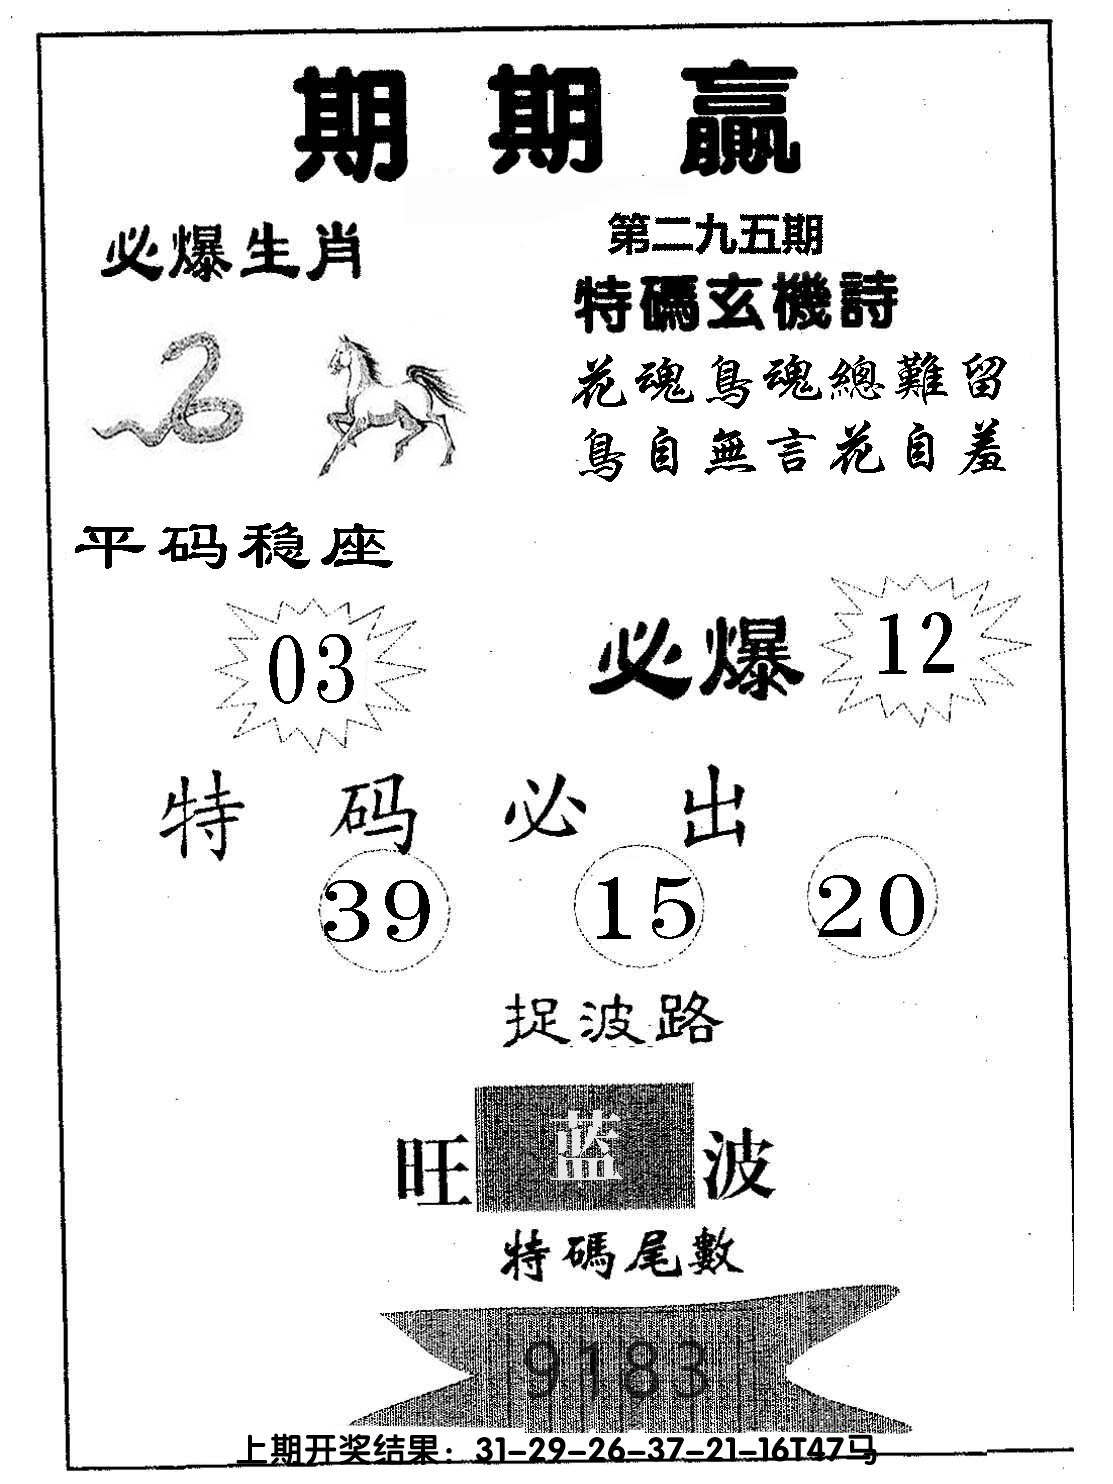 期期赢
必爆生肖
第二九五期
特碼玄機詩
花魂鳥魂總難留
鳥自無言花自羞
平码稳座
03
必爆 12
特码必出
39 15 20
捉波路
旺蓝波
特碼尾數
9183
上期开奖结果：31-29-26-37-21-16T47马